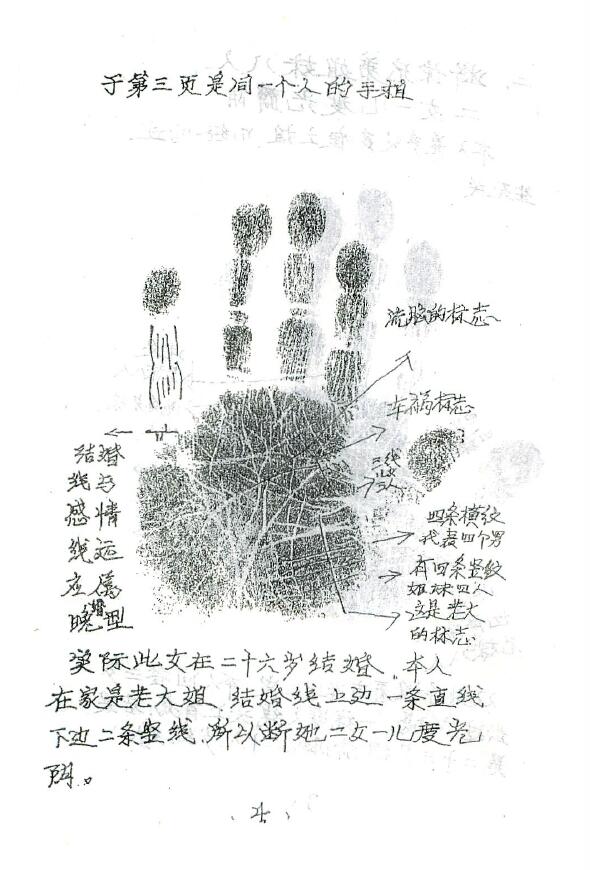 于第三页是同一个人的手担
流脑的标志
车祸标志
三线
三人
结婚
线与
感情
线远
应属
晚婚型
四条横纹
代表四个男
有四条竖纹
姐妹四人
这是老大
的标志
实际此女在二十六岁结婚.本人
在家是老大姐.结婚线上边一条直线
下边二条竖线.所以断她二女一儿度光
阴。
4